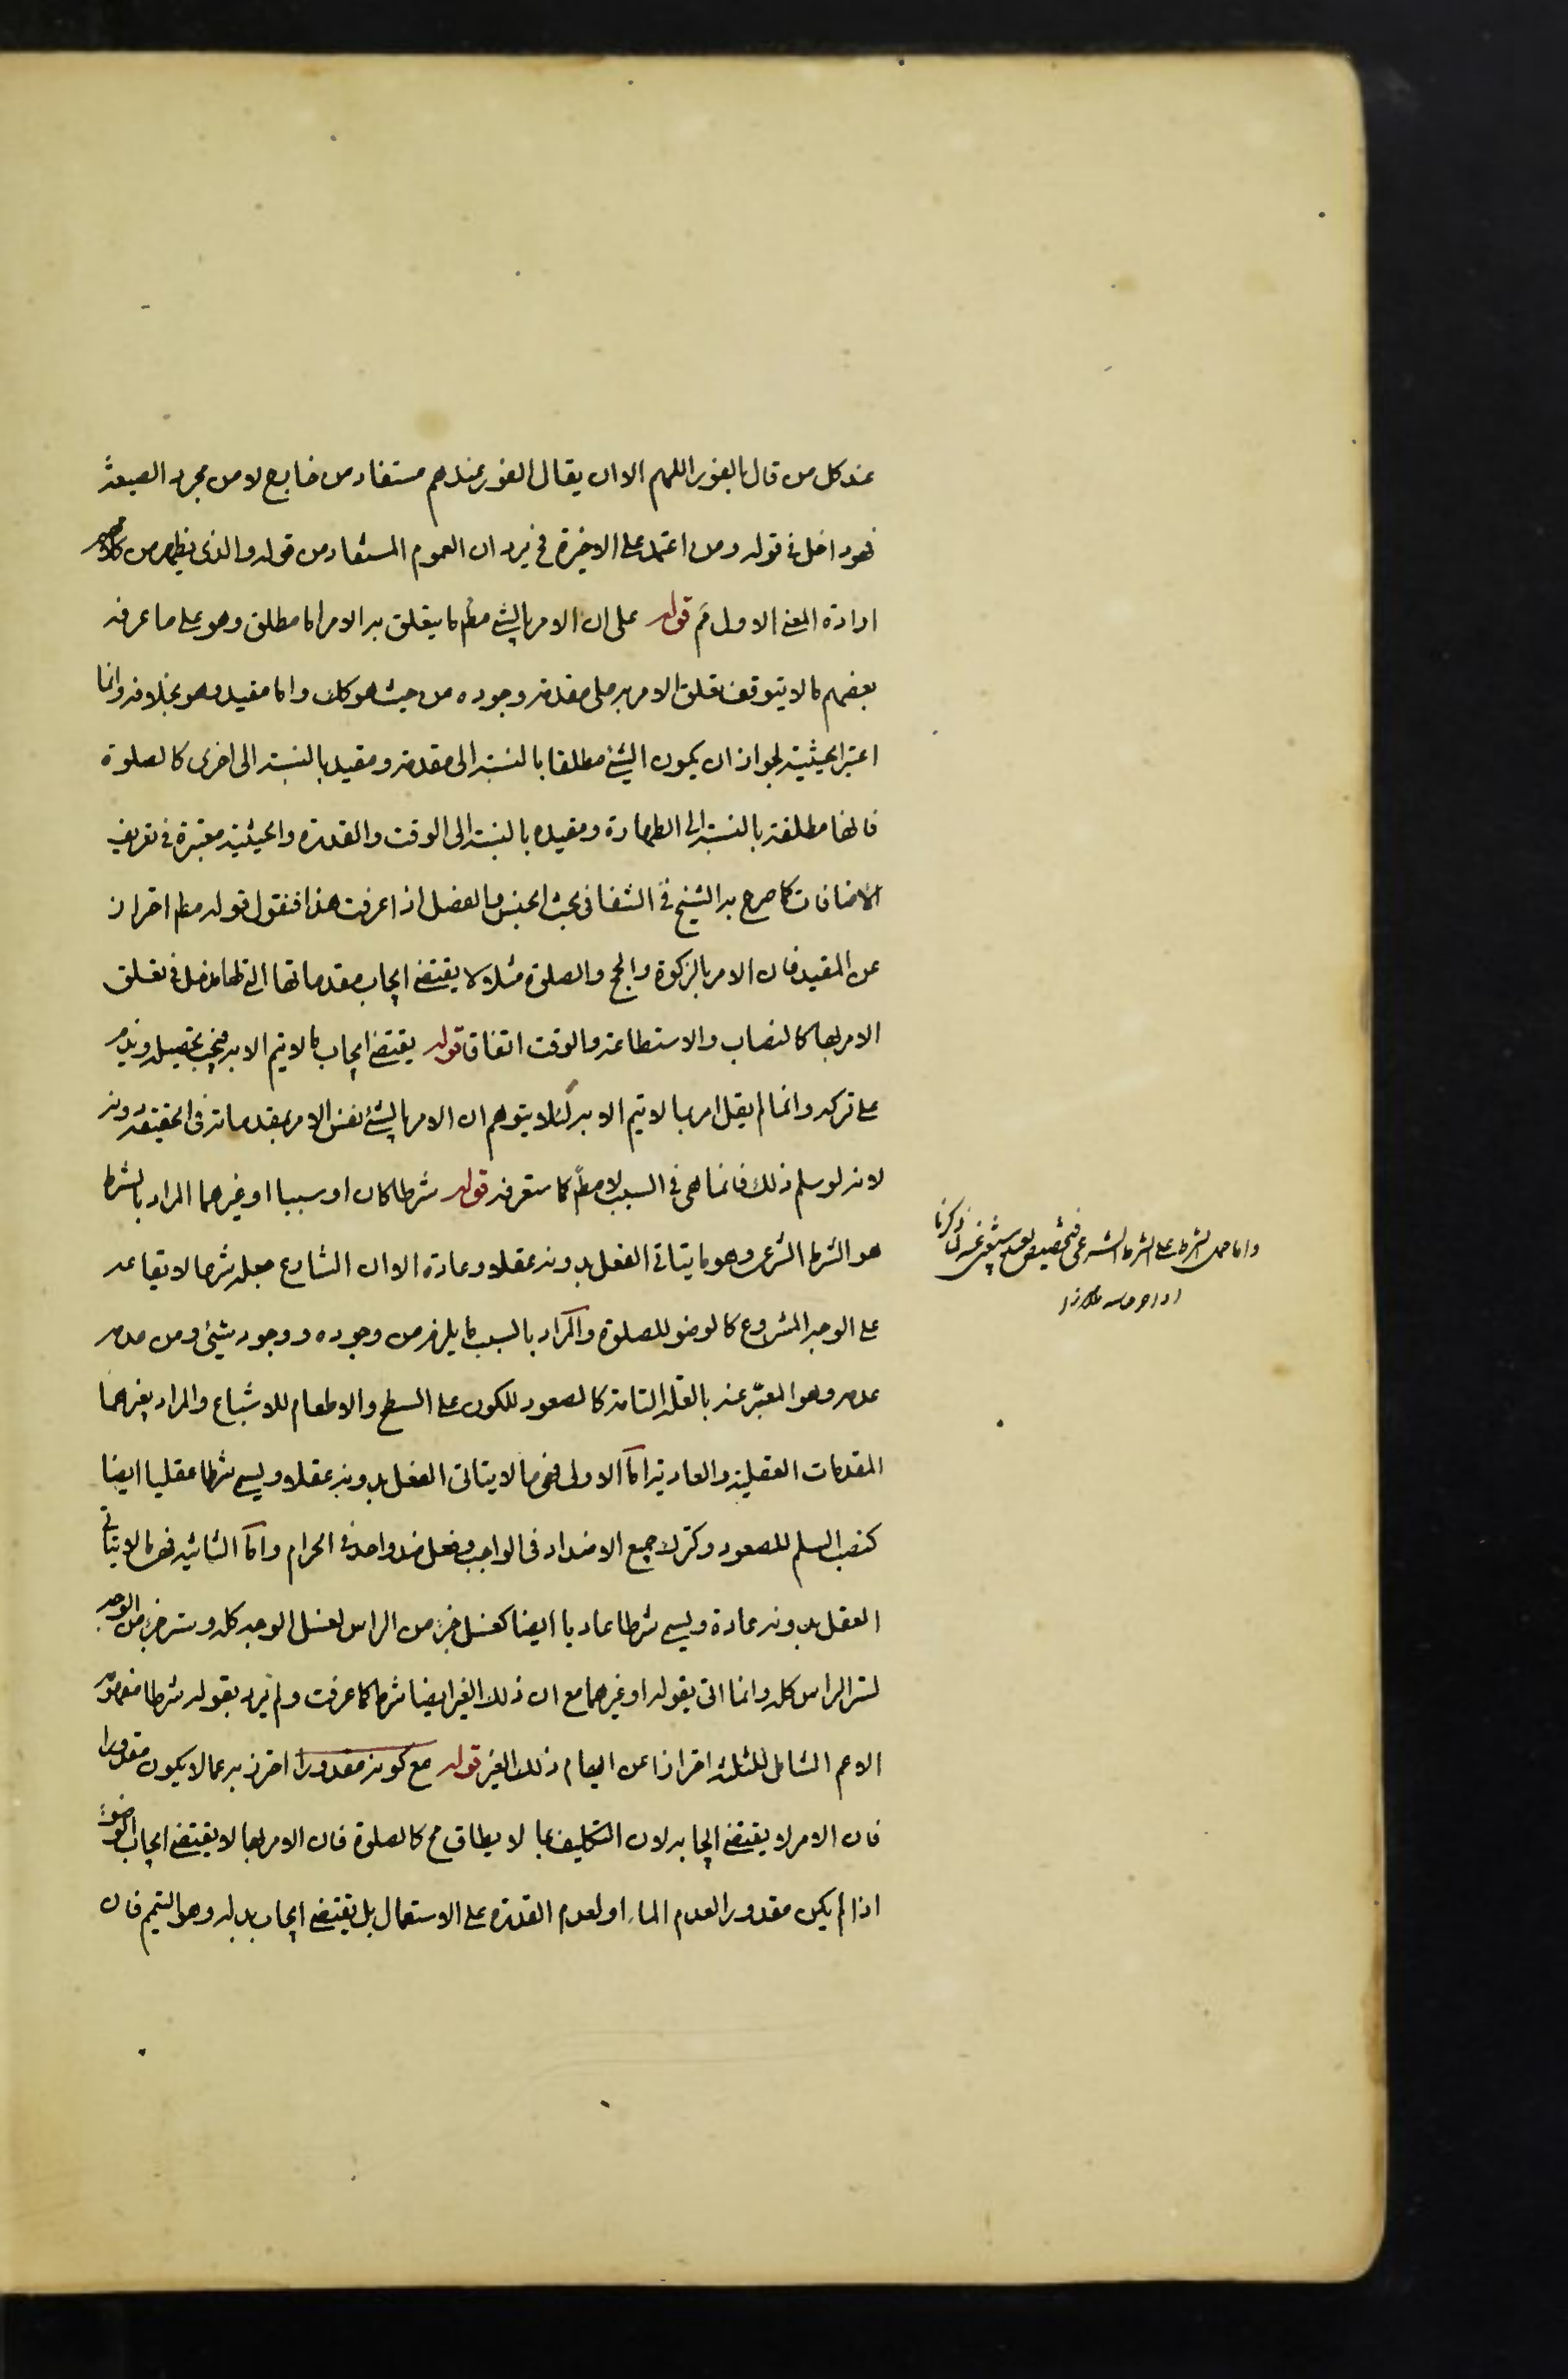 عند كل من قال بالفور اللهم الا ان يقال الفور عندهم مستفاد من خارج لا من مجرد الصيغة
فهو داخل فى قوله ومن اعتمد على الاخيرة فى يرد ان العموم المستفاد من قوله والذى يظهر من كلامهم
ارادة المعنى الاول تم قوله على ان الامر بالشئ مطم ما يتعلق به الامر اما مطلق وهو على ما عرفه
بعضهم ما لا يتوقف تعلق الامر به على مقدمة وجوده من حيث هو كك واما مقيد وهو بخلافه وانما
اعتبر الحيثية لجواز ان يكون الشئ مطلقا بالنسبة الى مقدمة ومقيد بالنسبة الى اخرى كالصلوة
فانها مطلقة بالنسبة الى الطهارة ومقيده بالنسبة الى الوقت والقدرة والحيثية معتبرة فى تعريف
الاضافات كما صرح به الشيخ فى الشفا فى بحث الجنس والفصل اذا عرفت هذا فنقول قوله مطم احتراز
عن المقيد فان الامر بالزكوة والحج والصلوة مثلا لا يقتضى ايجاب مقدماتها التى لها مدخل فى تعلق
الامر بها كالنصاب والاستطاعة والوقت اتفاقا قوله يقتضى ايجاب ما لا يتم الا به فيجب تحصيله ويذم
على تركه وانما لم يقل امر بما لا يتم الا به لئلا يتوهم ان الامر بالشئ نفس الامر بمقدماته فى الحقيقة
لانه لو سلم ذلك فانما هى فى السبب لا مطم كما ستعرفه قوله شرطا كان او سببا او غيرهما المراد بالشرط
هو الشرط الشرعى وهو ما يتاتى الفعل بدونه عقلا وعادة الا ان الشارع جعله شرطا لايقاعه
على الوجه المشروع كالوضو للصلوة والمراد بالسبب ما يلزم من وجوده وجود شيئ ومن عدمه
عدمه وهو المعبّر عنه بالعلة التامة كالصعود للكون على السطح والاطعام للاشباع والمراد بغيرهما
المقدمات العقلية والعادية اما الاولى فهى ما لا يتاتى الفعل بدونه عقلا ويسمى شرطا عقليا ايضا
كنصب السلم للصعود وكترك جميع الاضداد فى الواجب وفعل ضد واحد فى الحرام واما الثانية فهى ما لا يتاتى
العقل بدونه عادة ويسمى شرطا عاديا ايضا كغسل جزء من الراس لغسل الوجه كله وستر جزء من الوجه
لستر الراس كله وانما اتى بقوله او غيرهما مع ان ذلك الغير ايضا شرط كما عرفت ولم يرد بقوله شرطا مفهومه
الاعم الشامل للثلثة احترازا عن ايهام ذلك الغير قوله مع كونه مقدورا احترز به عما لا يكون مقدورا
فان الامر لا يقتضى ايجابه لان التكليف بما لا يطاق مح كالصلوة فان الامر بها لا يقتضى ايجاب الوضوء
اذا لم يكن مقدورا لعدم الماء او لعدم القدرة على الاستعمال بل يقتضى ايجاب بدله وهو التيمم فان
واما حمل الشرط على الشرط الشرعى فتخصيص